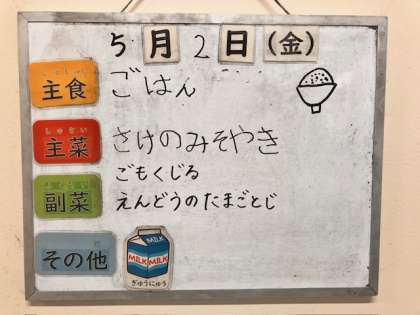 5月2日(金)
主食 ごはん
しゅさい
主菜 さけのみそやき
ごもくじる
副菜 えんどうのたまごとじ
その他
MILK
MILK MILK
ぎゅうにゅう